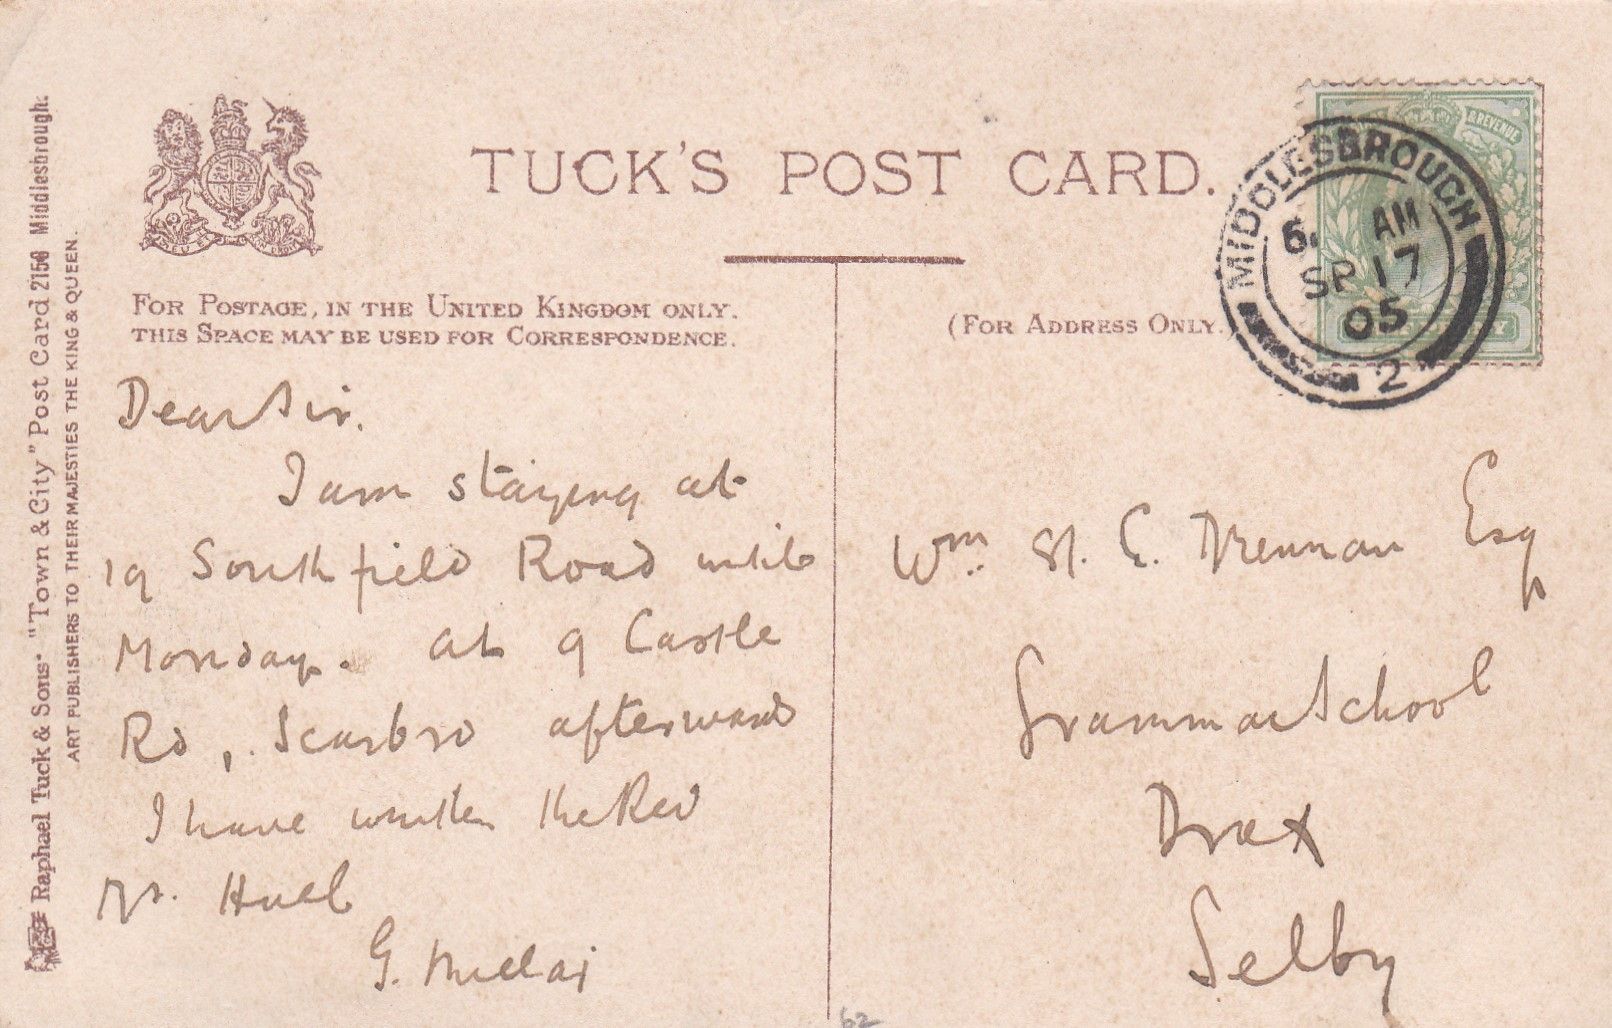 TUCK'S POST CARD.
FOR POSTAGE, IN THE UNITED KINGDOM ONLY.
THIS SPACE MAY BE USED FOR CORRESPONDENCE.
(FOR ADDRESS ONLY.
& REVENUE
MIDDLESBROUGH
6. AM
SP 17
05
2
Raphael Tuck & Sons' "Town & City" Post Card 2156 Middlesbrough.
ART PUBLISHERS TO THEIR MAJESTIES THE KING & QUEEN.
Dear Sir.
I am staying at
19 Southfield Road until
Monday. at 9 Castle
Rd, Scarbro afterwards
I have written the Rev
Mr. Hull
G. Millar
Wm. St. C. Drennan Esq
Grammar School
Drax
Selby
62